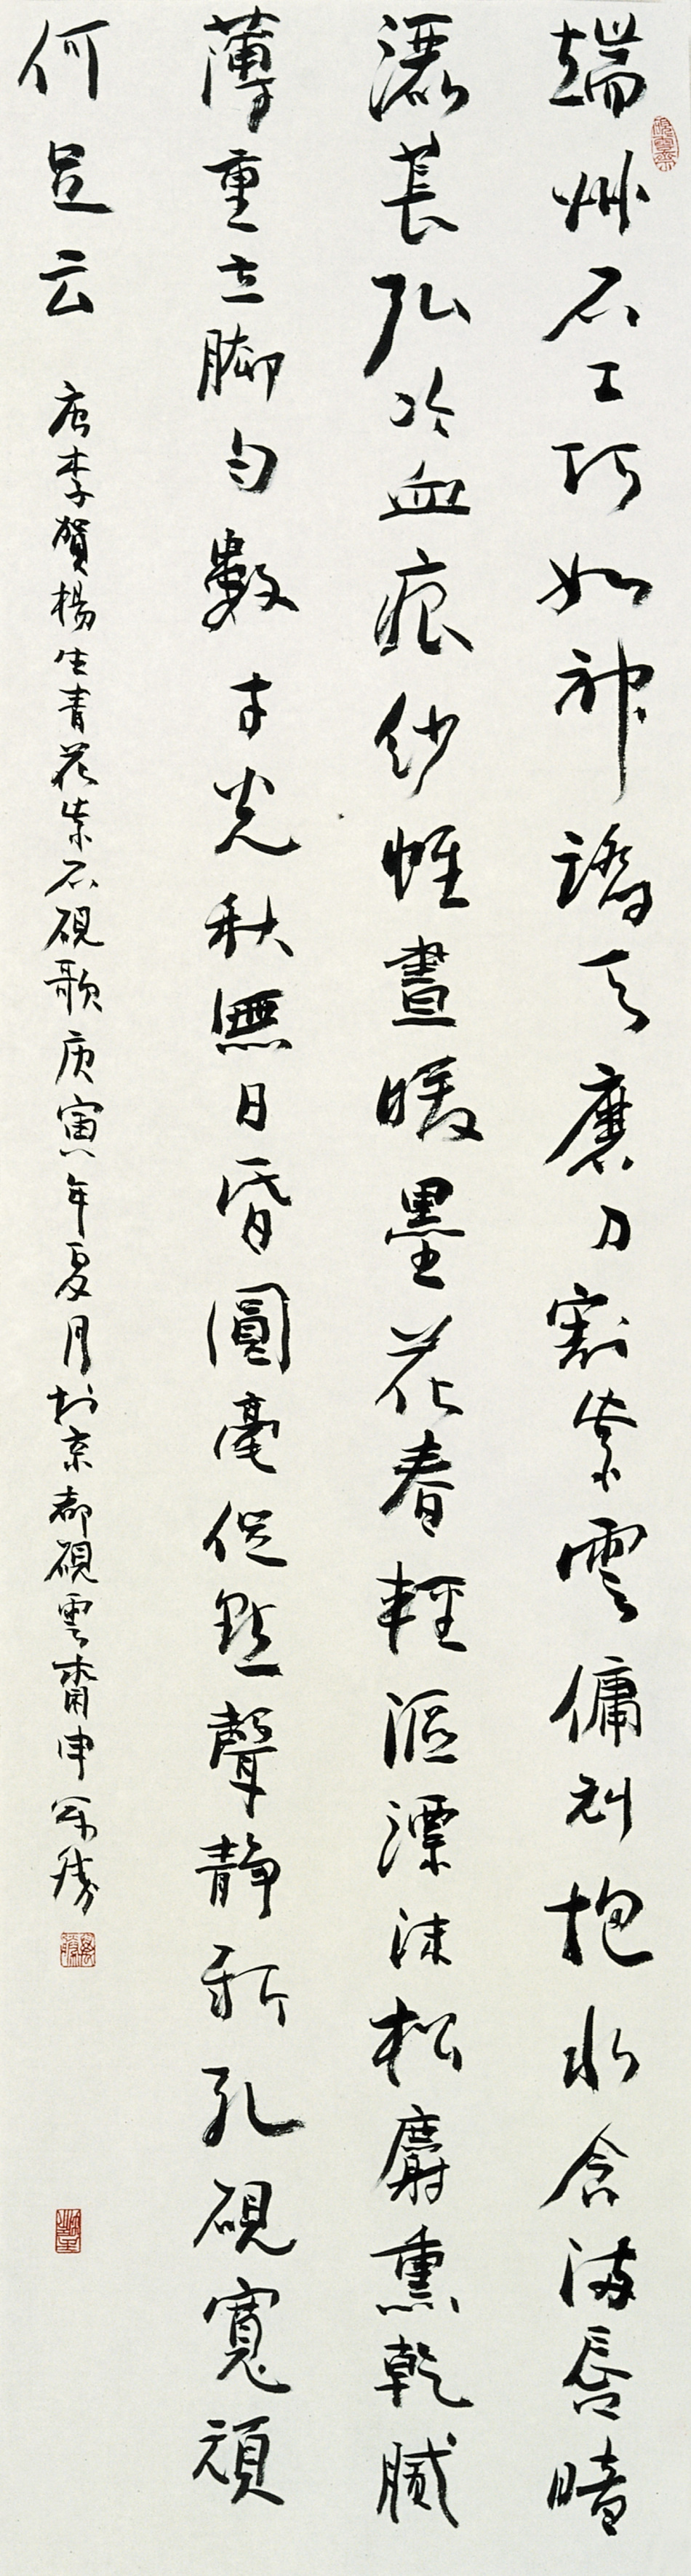 端州石工巧如神踏天磨刀割紫雲傭刓抱水含滿唇暗
灑萇弘冷血痕紗帷晝暖墨花春輕漚漂沫松麝熏乾膩
薄重立脚勻數寸光秋無日昏圓毫促點聲静新孔硯寬頑
何足云 唐李賀楊生青花紫石硯歌庚寅年夏月於京都硯雲齋申萬勝